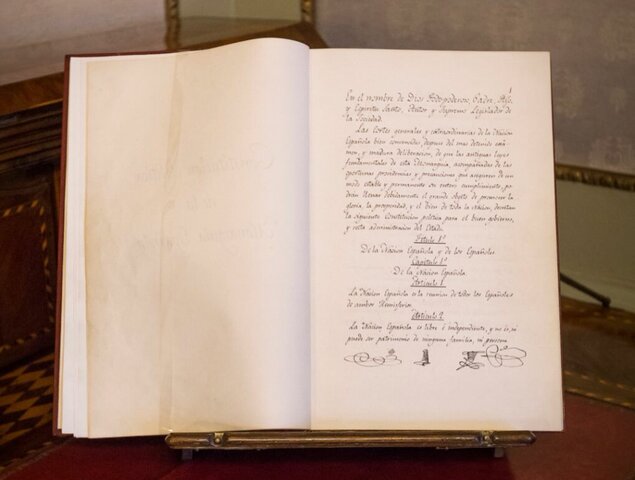 1
En el nombre de Dios Todopoderoso, Padre, Hijo,
y Espiritu Santo, Autor y Supremo Legislador de
la Sociedad.
Las Cortes generales y extraordinarias de la Nacion
Española bien convencidas, despues del mas detenido exâ-
men, y madura deliberacion, de que las antiguas leyes
fundamentales de esta Monarquia, acompañadas de las
oportunas providencias y precauciones que aseguren de un
modo estable y permanente su entero cumplimiento, po-
drán llenar debidamente el grande objeto de promover la
gloria, la prosperidad, y el bien de toda la Nacion, decretan
la siguiente Constitucion politica para el buen gobierno,
y recta administracion del Estado.
Título 1º
De la Nacion Española y de los Españoles
Capítulo 1º
De la Nacion Española
Artículo 1
La Nacion Española es la reunion de todos los Españoles
de ambos Hemisferios.
Artículo 2
La Nacion Española es libre é independiente, y no es, ni
puede ser patrimonio de ninguna familia, ni persona